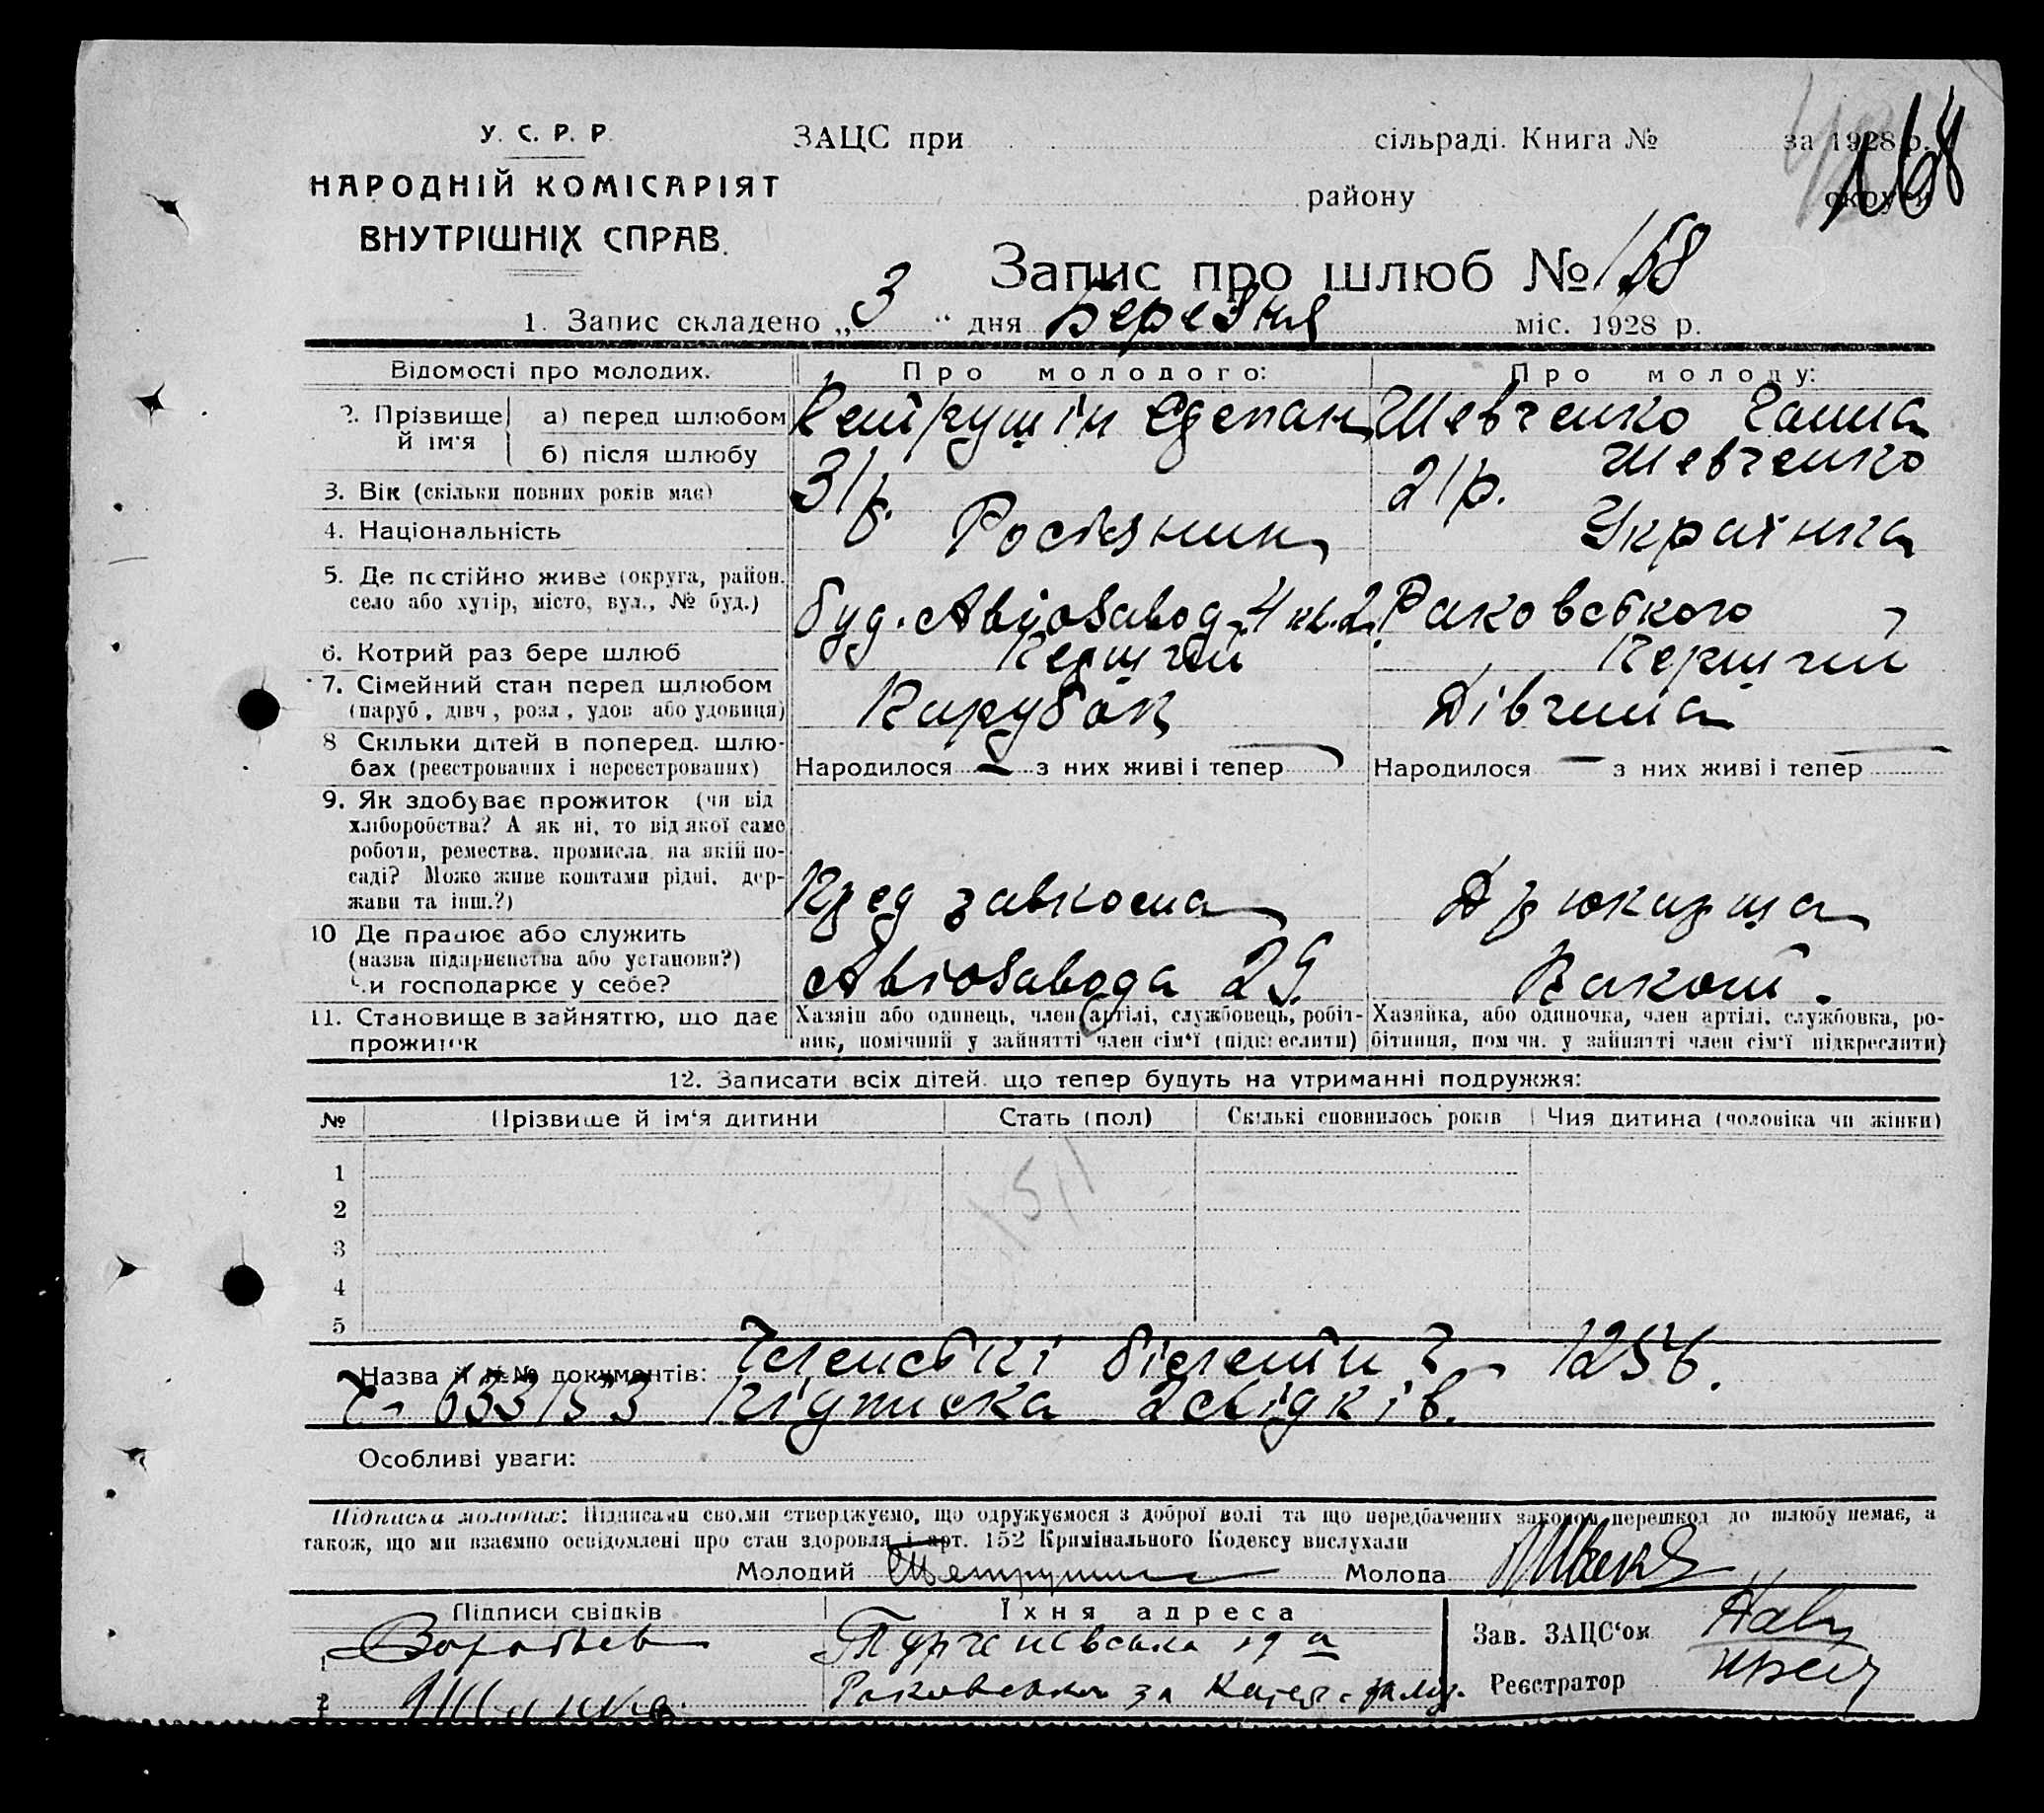 У. С. Р. Р.
НАРОДНІЙ КОМІСАРІЯТ
ВНУТРІШНІХ СПРАВ.
ЗАЦС при сільраді. Книга № за 1928 р.
району округи
168
Запис про шлюб № 168
1. Запис складено „ 3 “ дня Березня міс. 1928 р.
Відомості про молодих. Про молодого: Про молоду:
2. Прізвище й ім'я а) перед шлюбом Петрушін Степан Шевченко Ганна
б) після шлюбу Шевченко
3. Вік (скільки повних років має) 31 р. 21 р.
4. Національність Росіянин Українка
5. Де постійно живе (округа, район, село або хутір, місто, вул., № буд.) буд. Авіозавод. 4 кв. 2. Раковського 7
6. Котрий раз бере шлюб Перший Перший
7. Сімейний стан перед шлюбом (паруб., дівч., розл., удов. або удовиця) Парубок Дівчина
8 Скільки дітей в поперед. шлюбах (реєстрованих і нереєстрованих) Народилося — з них живі і тепер — Народилося — з них живі і тепер —
9. Як здобуває прожиток (чи від
хліборобства? А як ні, то від якої саме
роботи, ремества, промисла, на якій по-
саді? Може живе коштами рідні, дер-
жави та інш.?) Пред завкома
10 Де працює або служить
(назва підприємства або установи?)
Чи господарює у себе? Авіозавода 29.
11. Становище в зайняттю, що дає
прожиток
Хазяїн або одинець, член артілі, службовець, робіт-
ник, помічний у зайнятті член сім'ї (підкреслити)
Хазяйка, або одиночка, член артілі, службовка, ро-
бітниця, помічн. у зайнятті член сім'ї підкреслити)
12. Записати всіх дітей, що тепер будуть на утриманні подружжя:
№ Прізвище й ім'я дитини Стать (пол) Скількі сповнилось років Чия дитина (чоловіка чи жінки)
1
2
3
4
5
Назва й №№ документів: Членські білети № 1256.
№ 633153 підписка 2 свідків.
Особливі уваги:
Підписка молодих: Підписами своїми стверджуємо, що одружуємося з доброї волі та що передбачених законом перешкод до шлюбу немає, а
також, що ми взаємно освідомлені про стан здоровля і арт. 152 Кримінального Кодексу вислухали
Молодий Петрушин Молода
Підписи свідків Їхня адреса
1 Воробьев
2
Зав. ЗАЦС'ом
Реєстратор